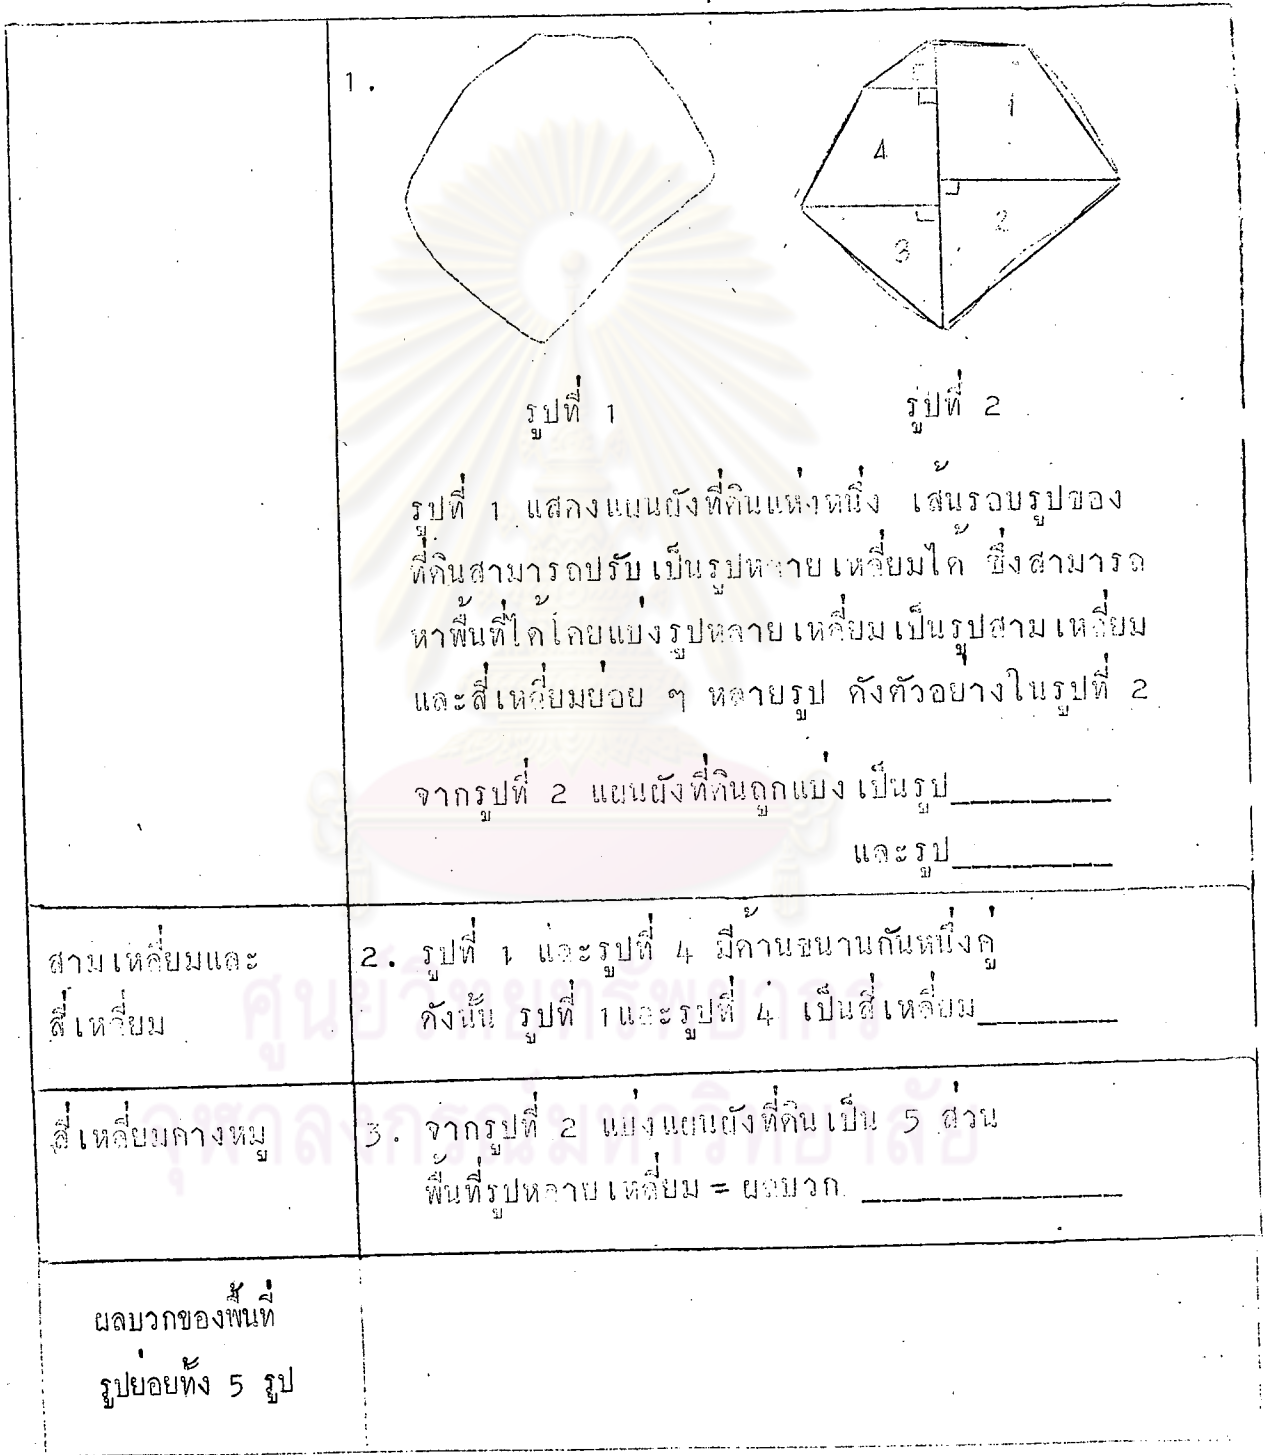 1.
1
4
2
3
รูปที่ 1
รูปที่ 2
รูปที่ 1 แสดงแผนผังที่ดินแห่งหนึ่ง เส้นรอบรูปของ
ที่ดินสามารถปรับเป็นรูปหลายเหลี่ยมได้ ซึ่งสามารถ
หาพื้นที่ได้โดยแบ่งรูปหลายเหลี่ยมเป็นรูปสามเหลี่ยม
และสี่เหลี่ยมย่อย ๆ หลายรูป ดังตัวอย่างในรูปที่ 2
จากรูปที่ 2 แผนผังที่ดินถูกแบ่งเป็นรูป
และรูป
สามเหลี่ยมและ
สี่เหลี่ยม
2. รูปที่ 1 และรูปที่ 4 มีด้านขนานกันหนึ่งคู่
ดังนั้น รูปที่ 1และรูปที่ 4 เป็นสี่เหลี่ยม
สี่เหลี่ยมคางหมู
3. จากรูปที่ 2 แบ่งแผนผังที่ดินเป็น 5 ส่วน
พื้นที่รูปหลายเหลี่ยม = ผลบวก
ผลบวกของพื้นที่
รูปย่อยทั้ง 5 รูป
ศูนย์วิทยทรัพยากร
จุฬาลงกรณ์มหาวิทยาลัย